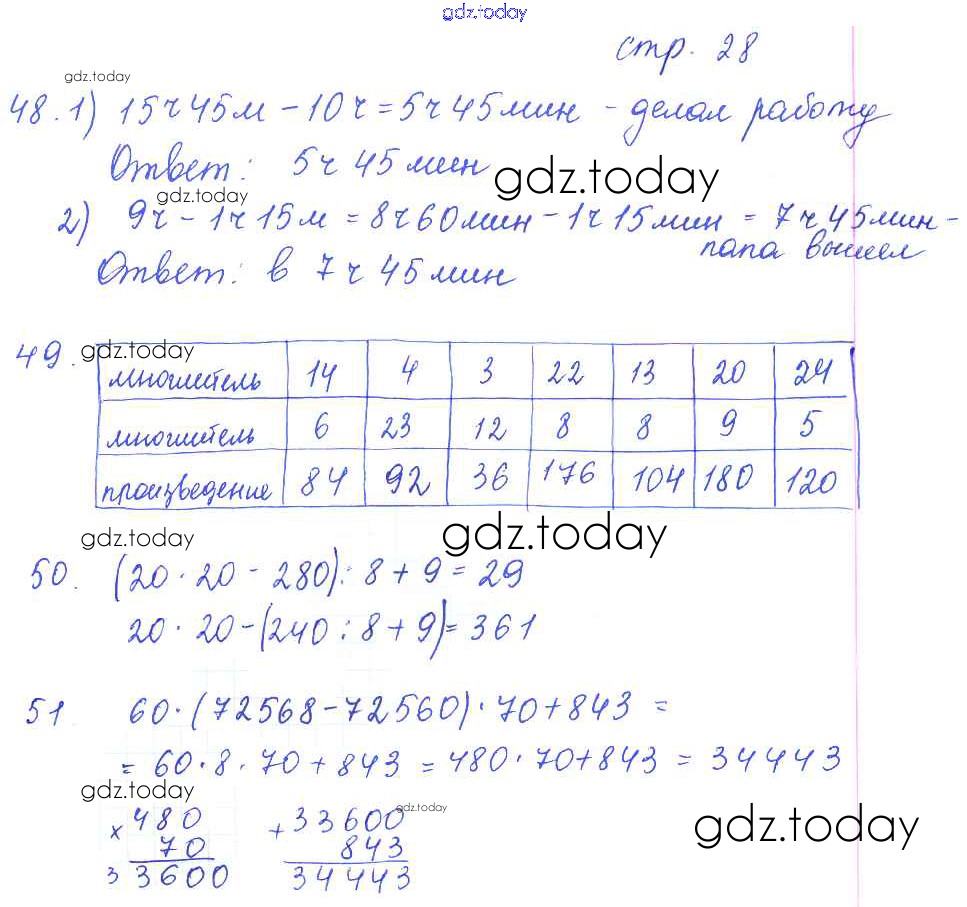 gdz.today
стр. 28
gdz.today
48. 1) 15ч45м - 10ч = 5ч45мин - делал работу
Ответ: 5ч 45мин
gdz.today
gdz.today
2) 9ч - 1ч15м = 8ч60мин - 1ч15мин = 7ч45мин -
папа вышел
Ответ: в 7ч 45мин
49. gdz.today
множитель 14 4 3 22 13 20 24
множитель 6 23 12 8 8 9 5
произведение 84 92 36 176 104 180 120
gdz.today gdz.today
50. (20 · 20 - 280) : 8 + 9 = 29
20 · 20 - (240 : 8 + 9) = 361
51 60 · (72568 - 72560) · 70 + 843 =
= 60 · 8 · 70 + 843 = 480 · 70 + 843 = 34443
gdz.today
gdz.today
× 480 + 33600
70 843
gdz.today
3 3600 34443